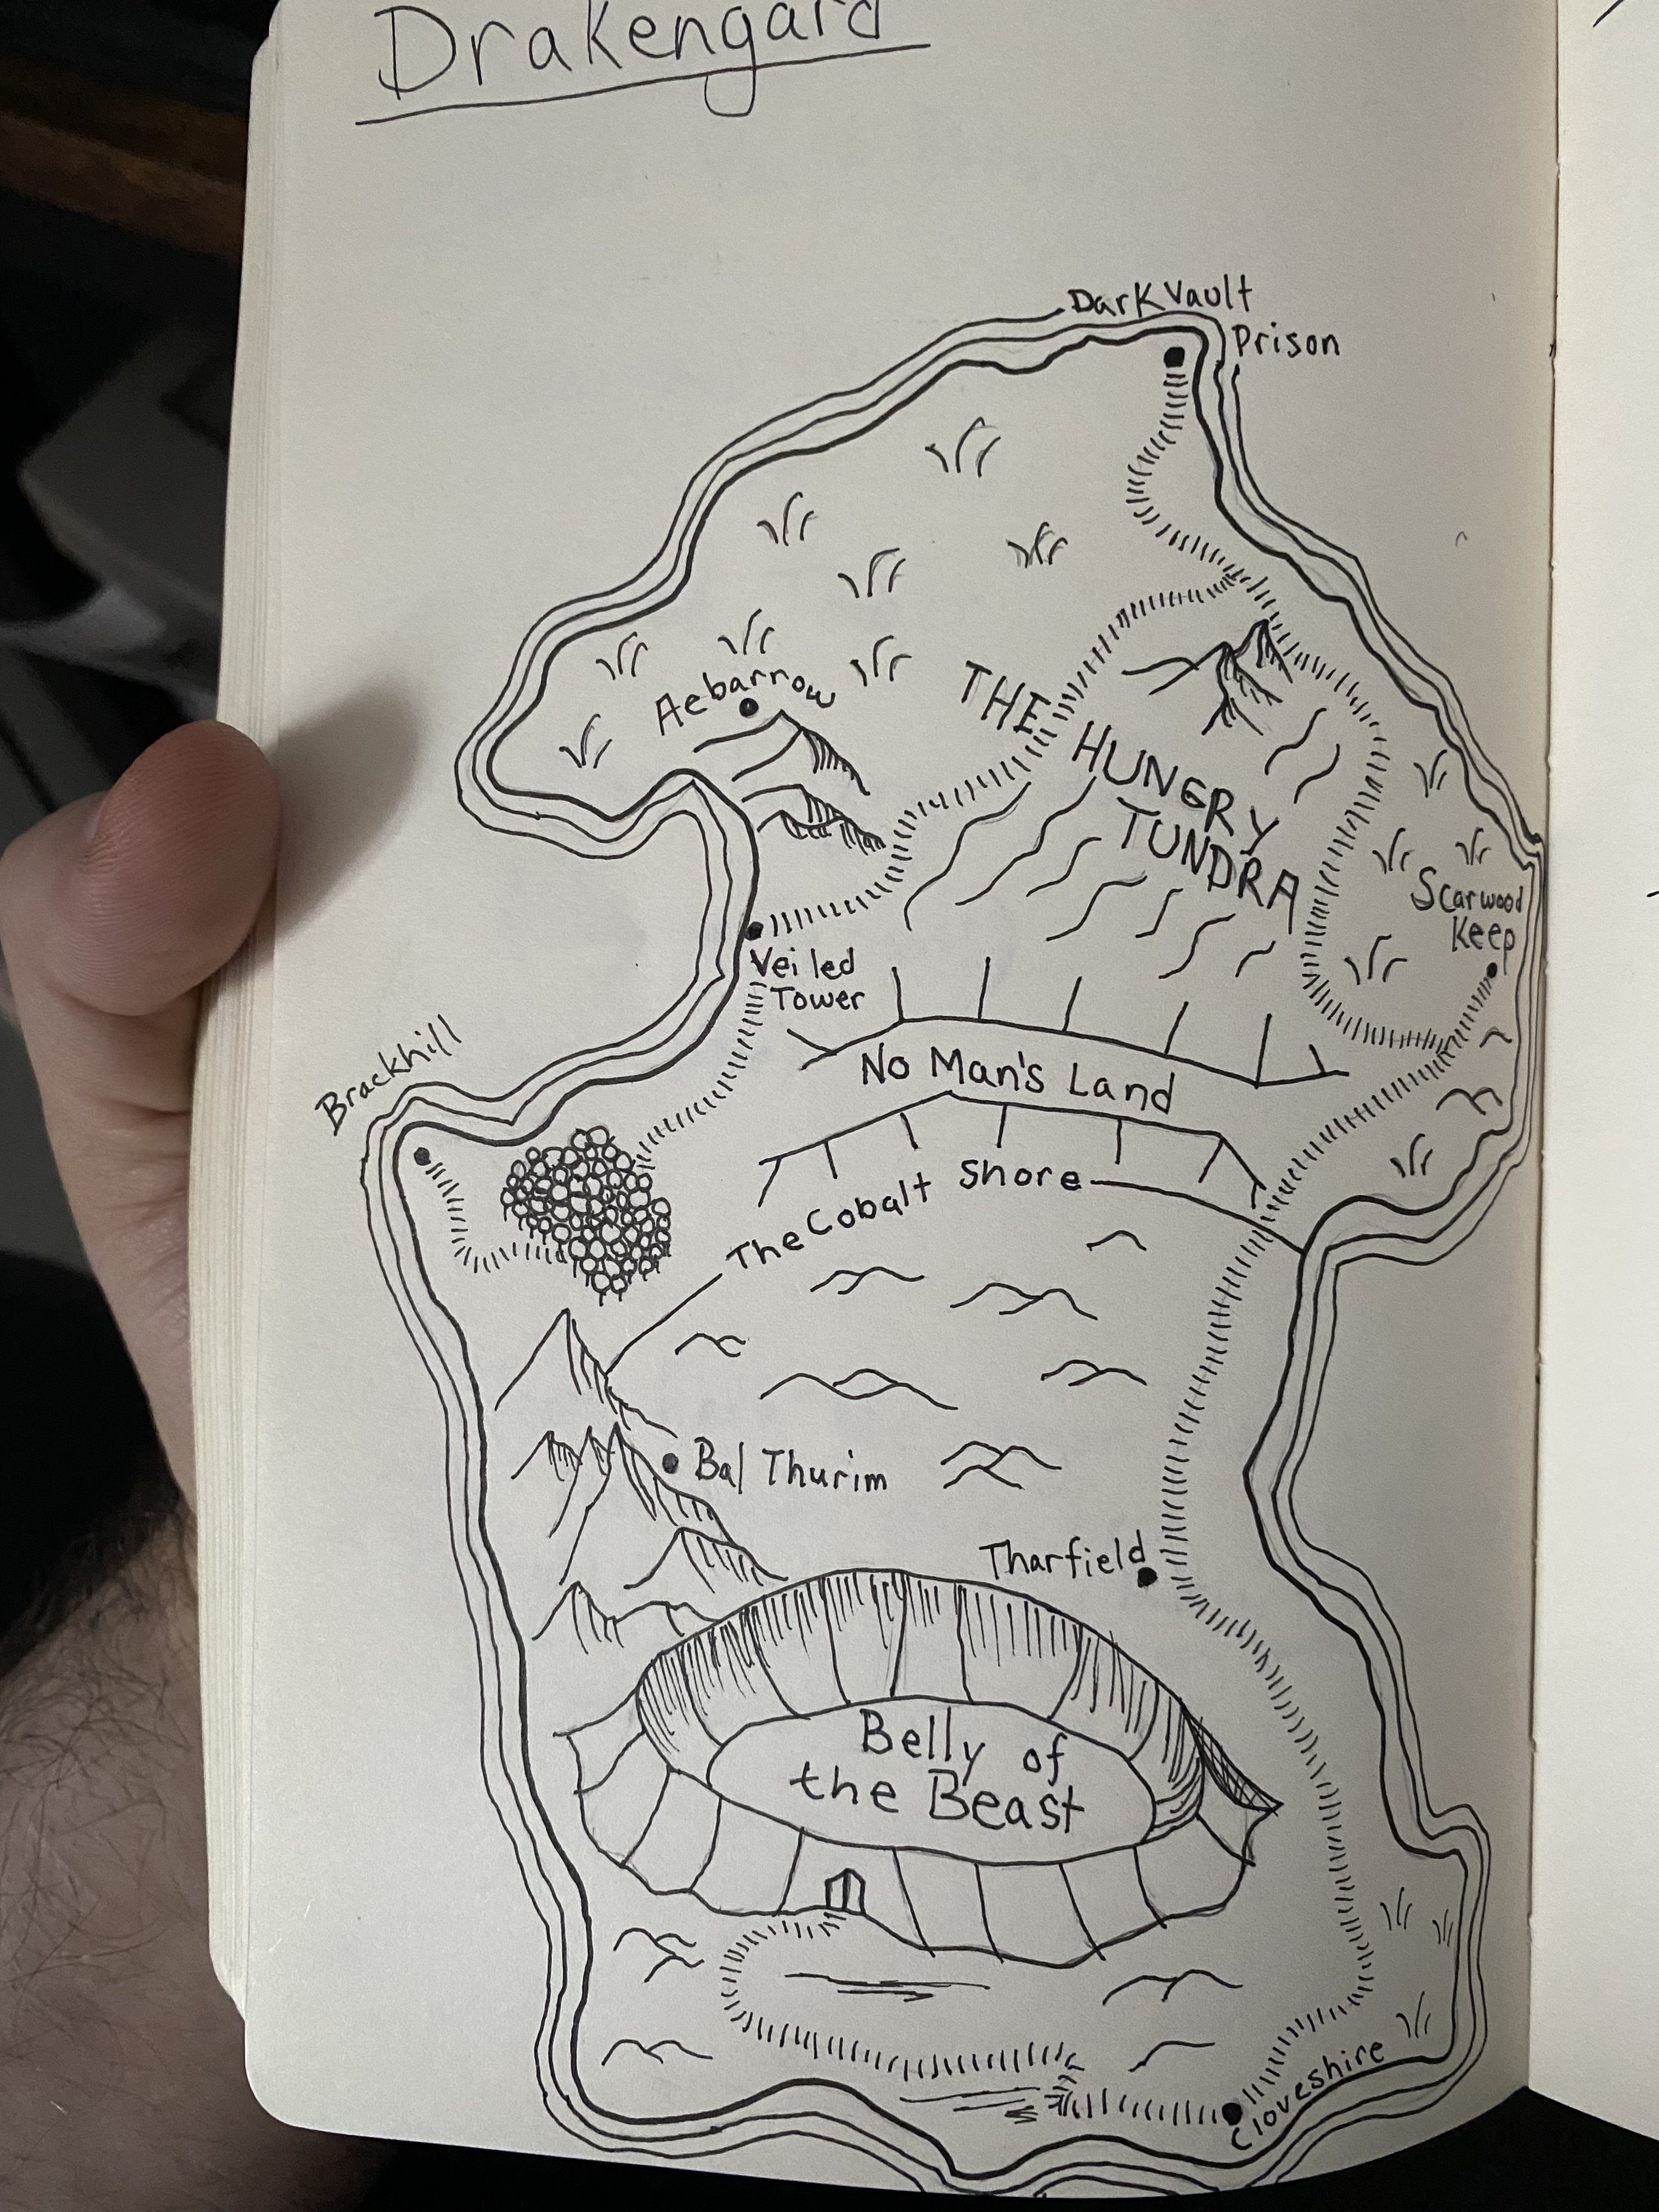 Drakengard
Dark Vault
Prison
Aebarrow
THE
HUNGRY
TUNDRA
Scarwood
Keep
Veiled
Tower
Brackhill
No Man's Land
The Cobalt Shore
Bal Thurim
Tharfield
Belly of
the Beast
Cloveshire